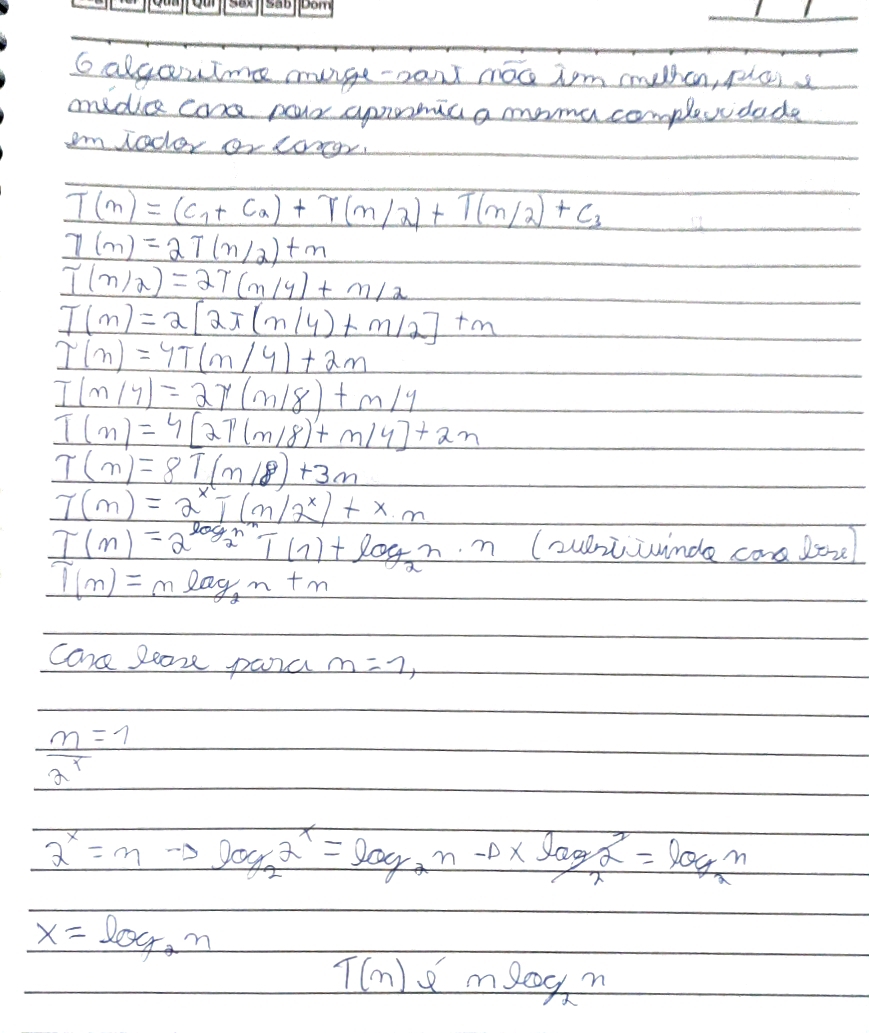 Ter Qua Qui Sex Sáb Dom
O algoritmo merge-sort não tem melhor, pior e
médio caso pois apresenta a mesma complexidade
em todos os casos.
T(n) = (C1 + C2) + T(n/2) + T(n/2) + C3
T(n) = 2T(n/2) + n
T(n/2) = 2T(n/4) + n/2
T(n) = 2[2T(n/4) + n/2] + n
T(n) = 4T(n/4) + 2n
T(n/4) = 2T(n/8) + n/4
T(n) = 4[2T(n/8) + n/4] + 2n
T(n) = 8T(n/8) + 3n
T(n) = 2^x T(n/2^x) + x.n
T(n) = 2^log₂n T(1) + log₂n . n (substituindo caso base)
T(n) = n log₂n + n
Caso base para n=1,
n/2^x = 1
2^x = n → log₂2^x = log₂n → x log₂2 = log₂n
x = log₂n
T(n) é n log₂n